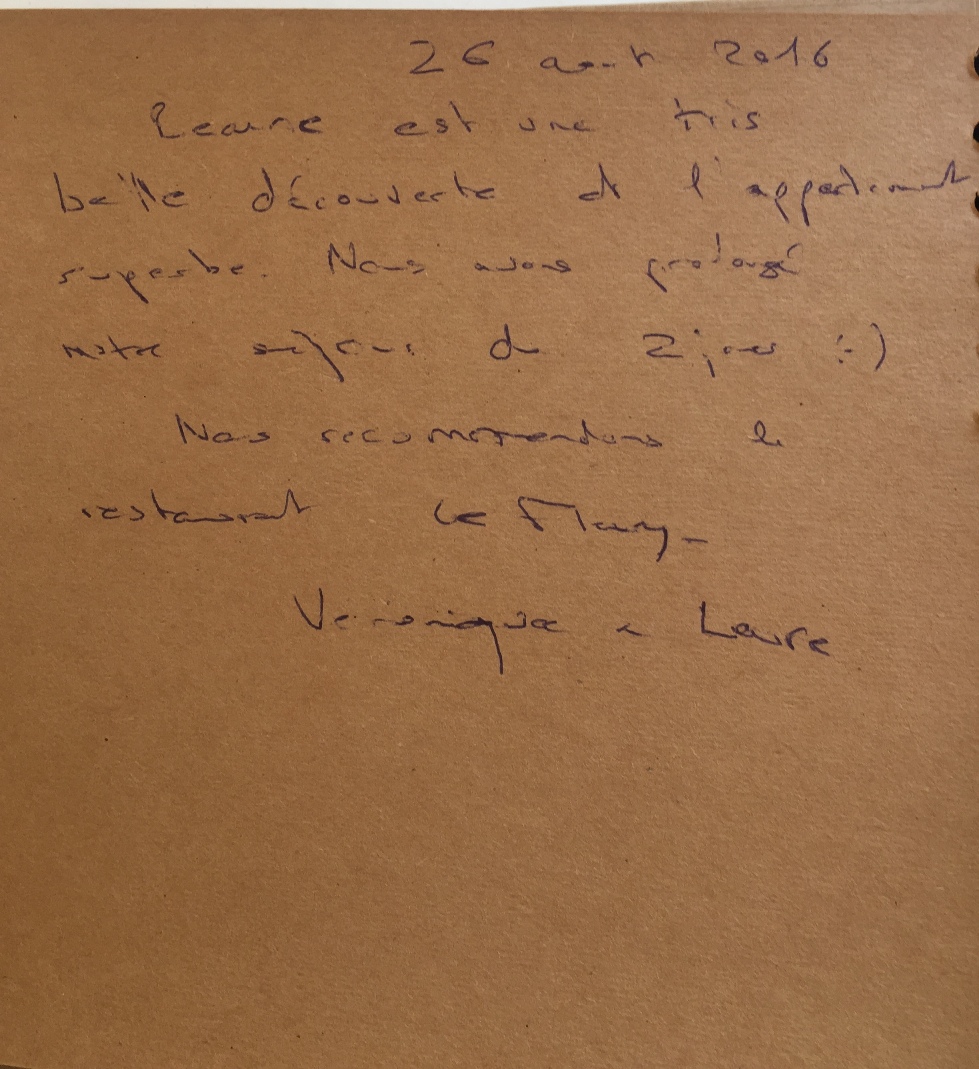 26 aout 2016
est une très
belle découverte et l'appartement
superbe. Nous avons prolongé
notre séjour de 2 jours :-)
Nous recommendons le
restaurant Le
Veronique & Laure